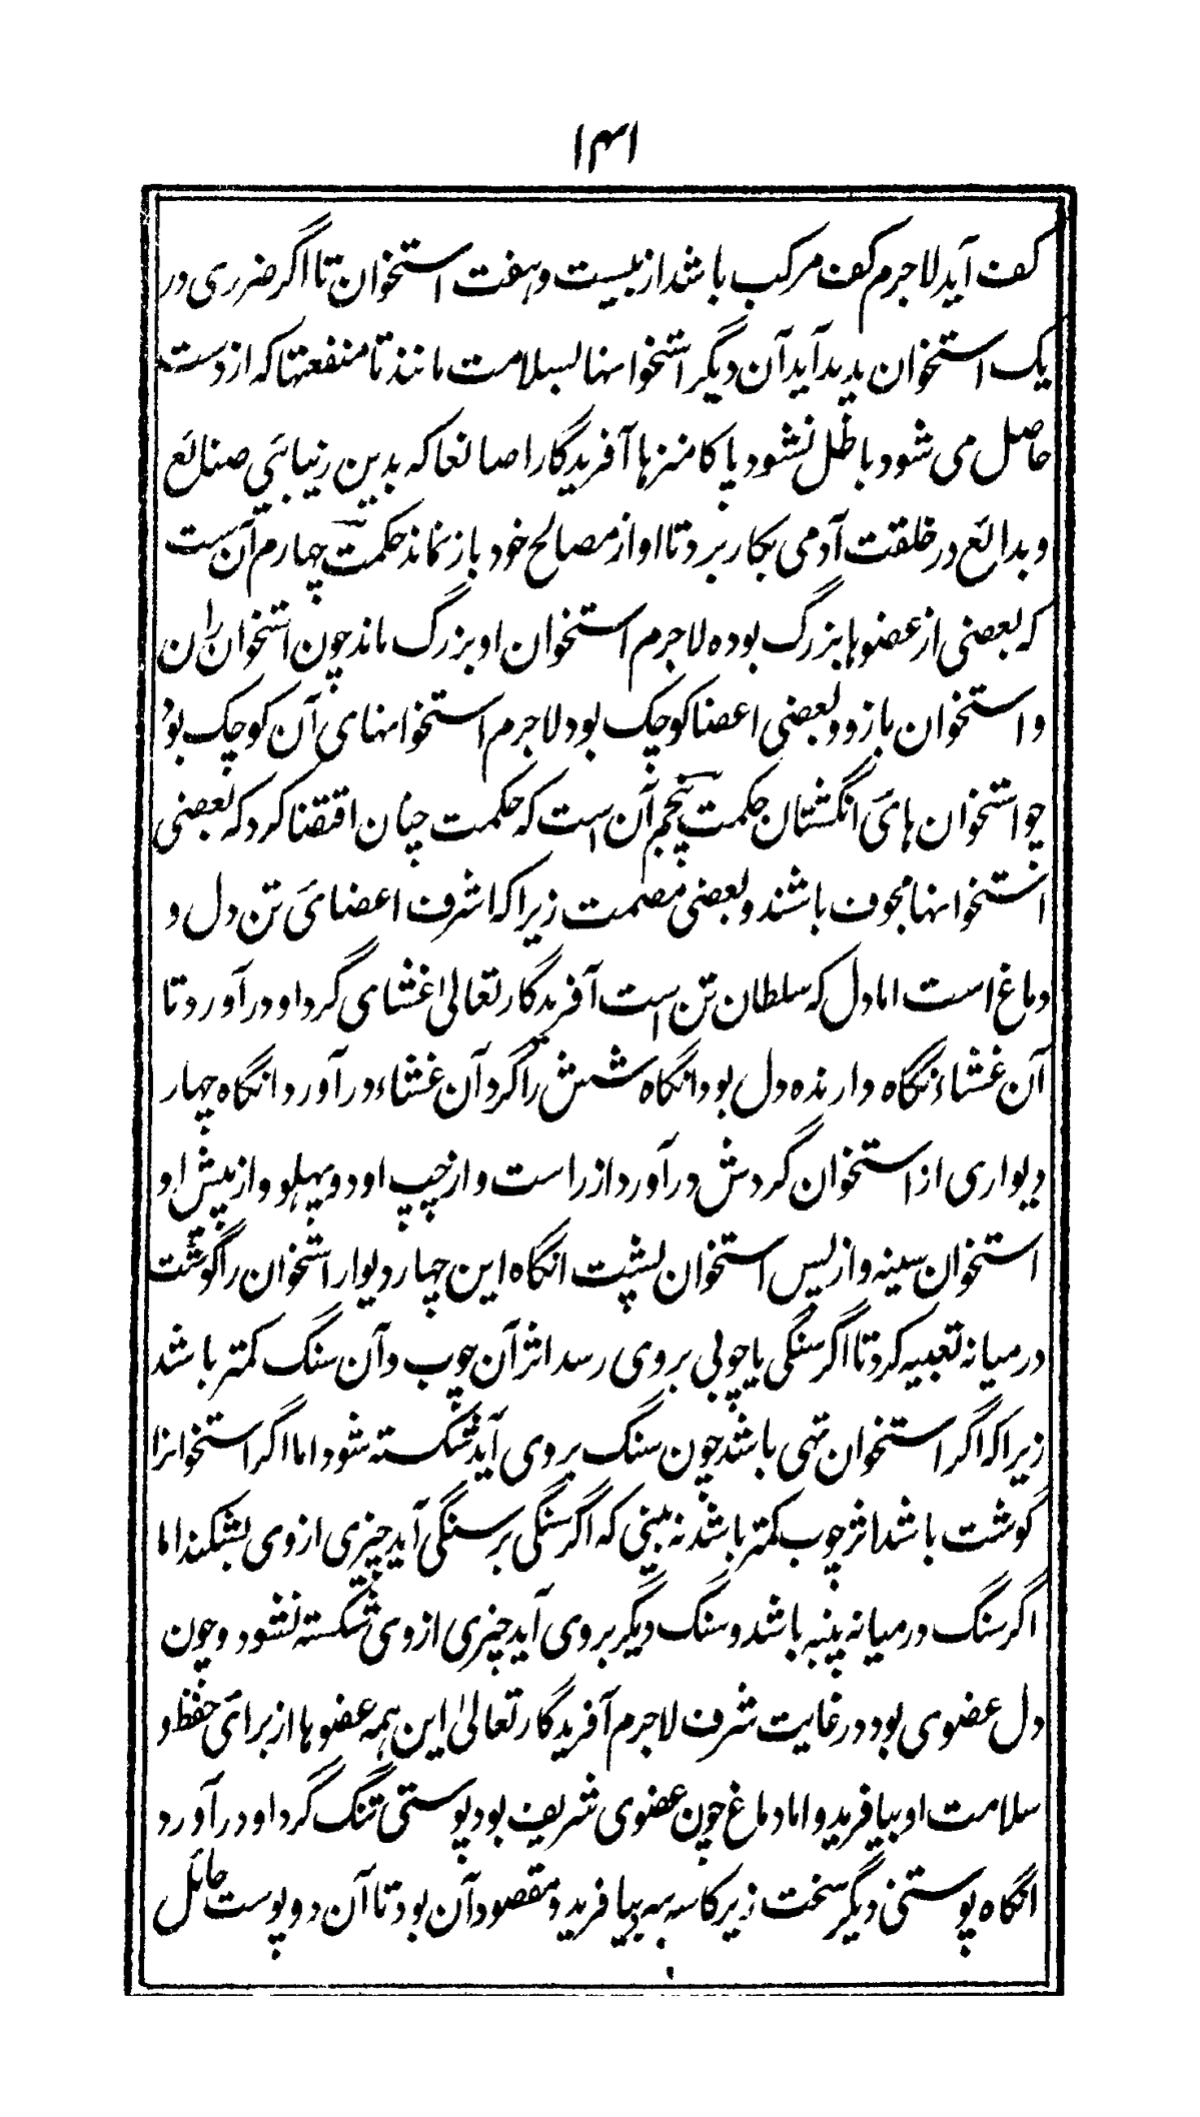 ۱۴۱
کف آید لاجرم کف مرکب باشد از بیست و هفت استخوان تا اگر ضرری در
یک استخوان پدید آید آن دیگر استخوانها بسلامت مانند تا منفعتها که از دست
حاصل می شود باطل نشود پاکا منزها آفریدگارا صانعا که بدین زیبائی صنائع
و بدائع در خلقت آدمی بکار برد تا او از مصالح خود باز نماند حکمت چهارم آن ست
که بعضی از عضوها بزرگ بوده لاجرم استخوان او بزرگ ماند چون استخوان ران
و استخوان بازو و بعضی اعضا کوچک بود لاجرم استخوانهای آن کوچک بود
چو استخوان هائ انگشتان حکمت پنجم آن است که حکمت چنان اقتضا کرد که بعضی
استخوانها مجوف باشند و بعضی مصمت زیرا که اشرف اعضائ تن دل و
دماغ است اما دل که سلطان تن است آفریدگار تعالی غشای گرد او در آورد تا
آن غشاء نگاه دارنده دل بود انگاه شش را گرد آن غشاء در آورد انگاه چهار
دیواری از استخوان گردش در آورد از راست و از چپ او دو پهلو و از پیش او
استخوان سینه و از پس استخوان پشت انگاه این چهار دیوار استخوان را گوشت
در میانه تعبیه کرد تا اگر سنگی یا چوبی بروی رسد اثر آن چوب و آن سنگ کمتر باشد
زیرا که اگر استخوان تهی باشد چون سنگ بروی آید شکسته شود اما اگر استخوانرا
گوشت باشد اثر چوب کمتر باشد نه بینی که اگر سنگی بر سنگی آید چیزی از وی بشکند اما
اگر سنگ در میانه پنبه باشد و سنگ دیگر بروی آید چیزی از وی شکسته نشود و چون
دل عضوی بود در غایت شرف لاجرم آفریدگار تعالیٰ این همه عضوها از برائ حفظ و
سلامت او بیافرید و اما دماغ چون عضوی شریف بود پوستی تنگ گرد او در آورد
انگاه پوستی دیگر سخت زیر کاسه سر بیافرید و مقصود آن بود تا آن دو پوست حائل